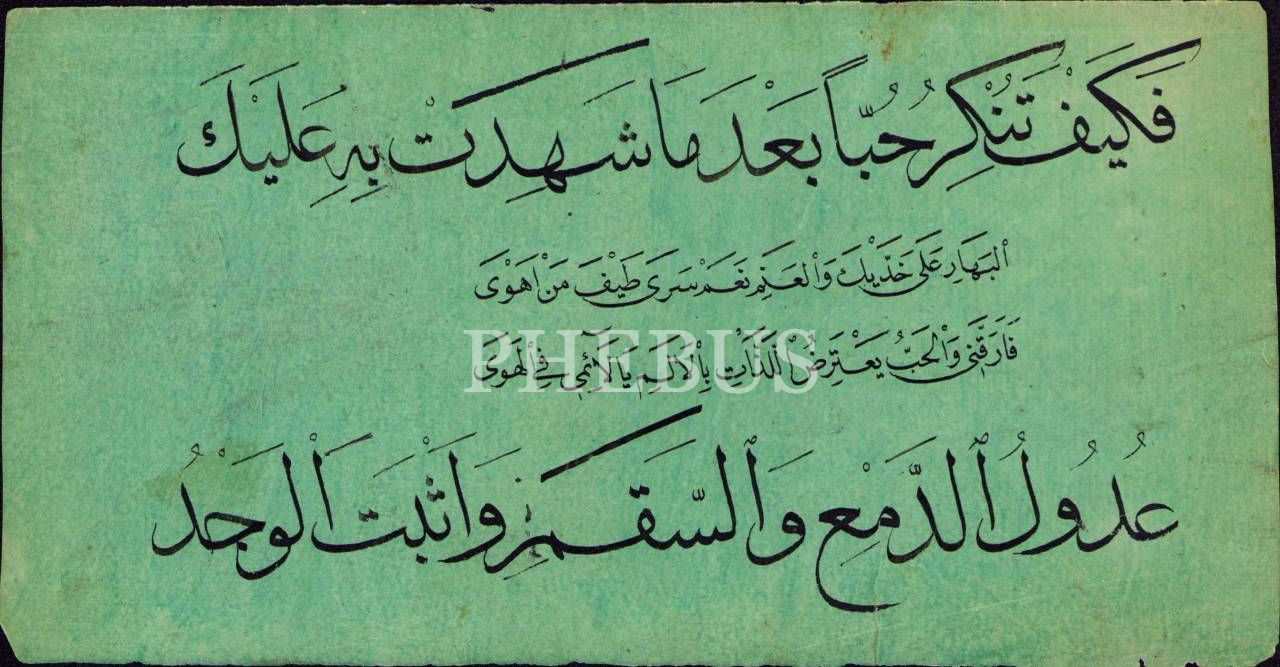 فَكَيْفَ تُنْكِرُ حُبّاً بَعْدَ مَا شَهِدَتْ بِهِ عَلَيْكَ
الْبَهَارِ عَلَى خَدَّيْكَ وَالْعَنَمِ نَعَمْ سَرَى طَيْفَ مَنْ اَهْوَى
فَارَّقَنِي وَالْحُبُّ يَعْتَرِضُ اللَّذَّاتِ بِالْاَلَمِ يَا لَائِمِي فِي الْهَوَى
PHEBUS
عُدُولُ الدَّمْعِ وَالسَّقَمِ وَاَثْبَتَ الْوَجْدُ